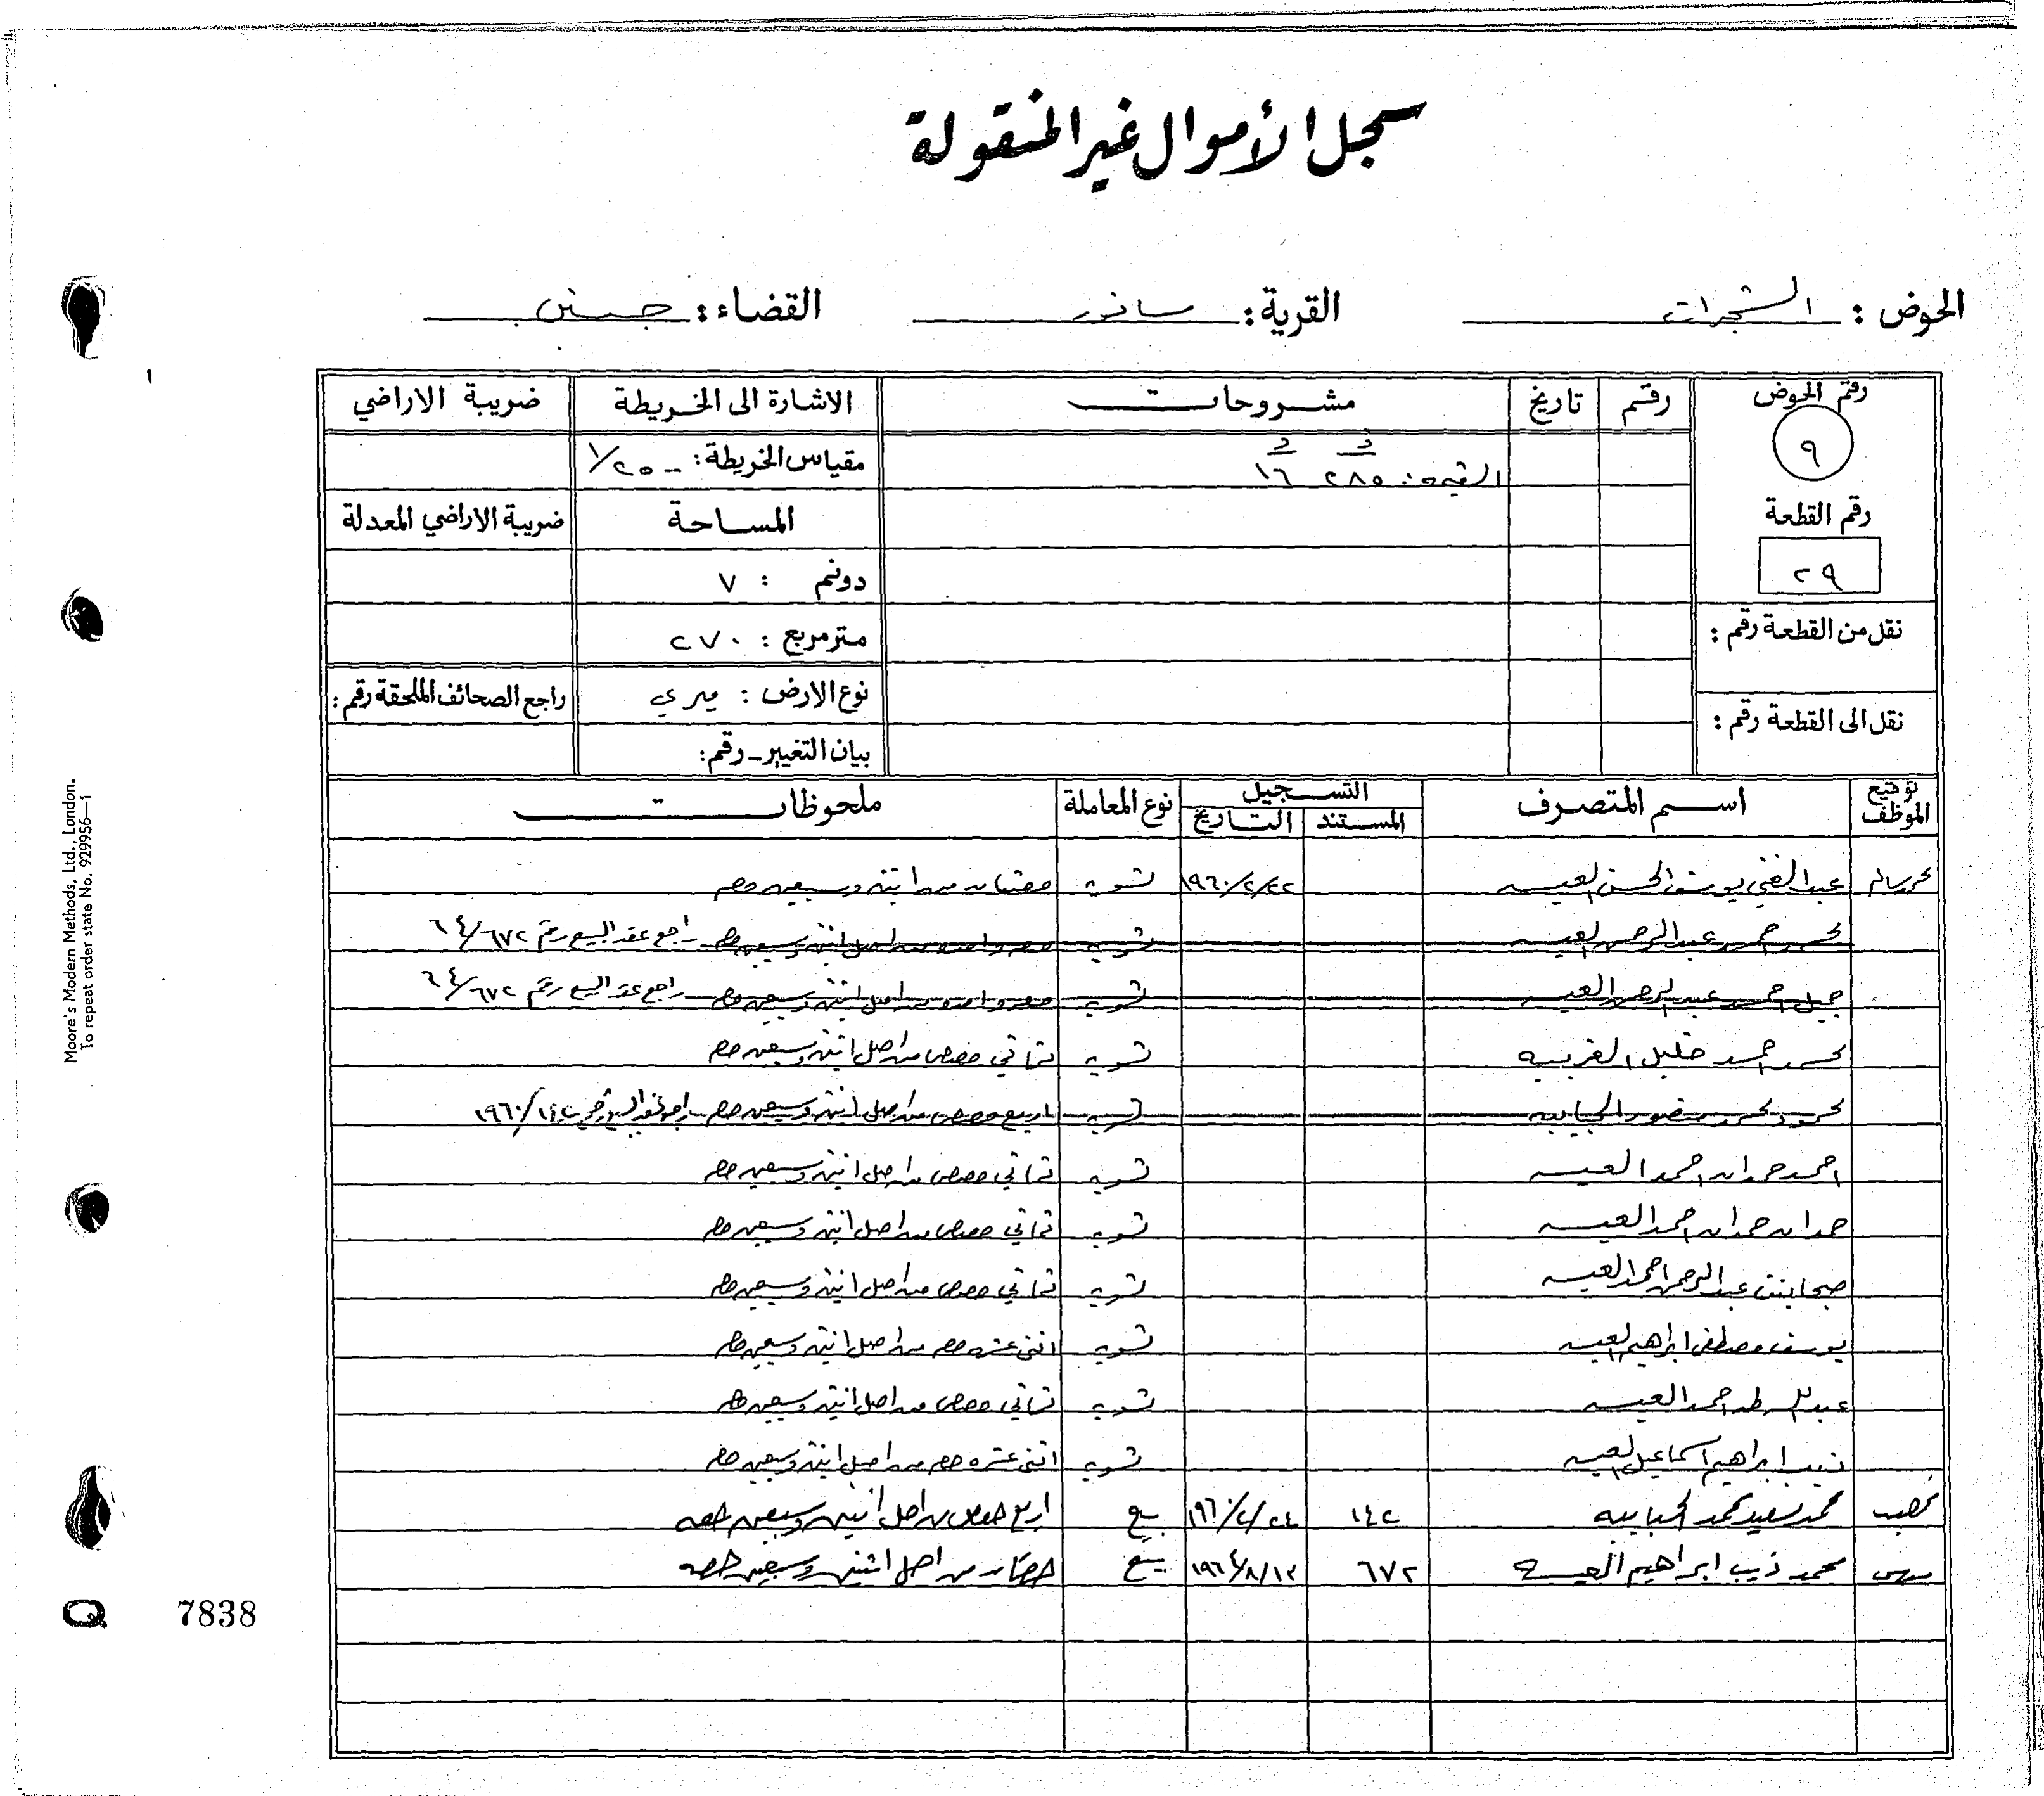 سجل الأموال غير المنقولة
الحوض : الشجرات القرية : سانور القضاء : جنين
١
رقم الحوض رقم تاريخ مشروحات الاشارة الى الخريطة ضريبة الاراضي
٩
القيمة: ٢٨٥ ١٦ مقياس الخريطة: ١/٢٥٠٠
رقم القطعة المساحة ضريبة الاراضي المعدلة
٢٩ دونم : ٧
نقل من القطعة رقم : متر مربع : ٢٧٠
نوع الارض : ميري راجع الصحائف الملحقة رقم :
نقل الى القطعة رقم :
بيان التغيير - رقم :
توقيع الموظف اسم المتصرف التسجيل نوع المعاملة ملحوظات
المستند التاريخ
عبد الغني يوسف الحسن العيسه ١٩٦٠/٢/٢٢ تسويه حصتان من اثنين وسبعين حصه
محمد احمد عبد الرحمن العيسه تسويه حصه واحده من اصل اثنين وسبعين حصه راجع عقد البيع رقم ٦٤/٦٧٢
جميل احمد عبد الرحمن العيسه تسويه حصه واحده من اصل اثنين وسبعين حصه راجع عقد البيع رقم ٦٤/٦٧٢
محمد احمد خليل الغربيه تسويه ثماني حصص من اصل اثنين وسبعين حصه
محمود محمد منصور الحبايبه تسويه اربع حصص من اصل اثنين وسبعين حصه راجع عقد البيع رقم ١٩٦٠/١٤٢
احمد حمدان احمد العيسه تسويه ثماني حصص من اصل اثنين وسبعين حصه
حمدان حمدان احمد العيسه تسويه ثماني حصص من اصل اثنين وسبعين حصه
صبحا بنت عبد الرحمن احمد العيسه تسويه ثماني حصص من اصل اثنين وسبعين حصه
يوسف مصطفى ابراهيم العيسه تسويه اثني عشره حصه من اصل اثنين وسبعين حصه
عبد الله طه احمد العيسه تسويه ثماني حصص من اصل اثنين وسبعين حصه
ذيب ابراهيم اسماعيل العيسه تسويه اثني عشره حصه من اصل اثنين وسبعين حصه
محمد سعيد محمد الحبايبه ١٤٢ ١٩٦٠/٢/٢٤ بيع اربع حصص من اصل اثنين وسبعين حصه
محمد ذيب ابراهيم العيسه ٦٧٢ ١٩٦٤/٨/١٢ بيع حصتان من اصل اثنين وسبعين حصه
Moore's Modern Methods, Ltd., London.
To repeat order state No. 929956—1
Q 7838